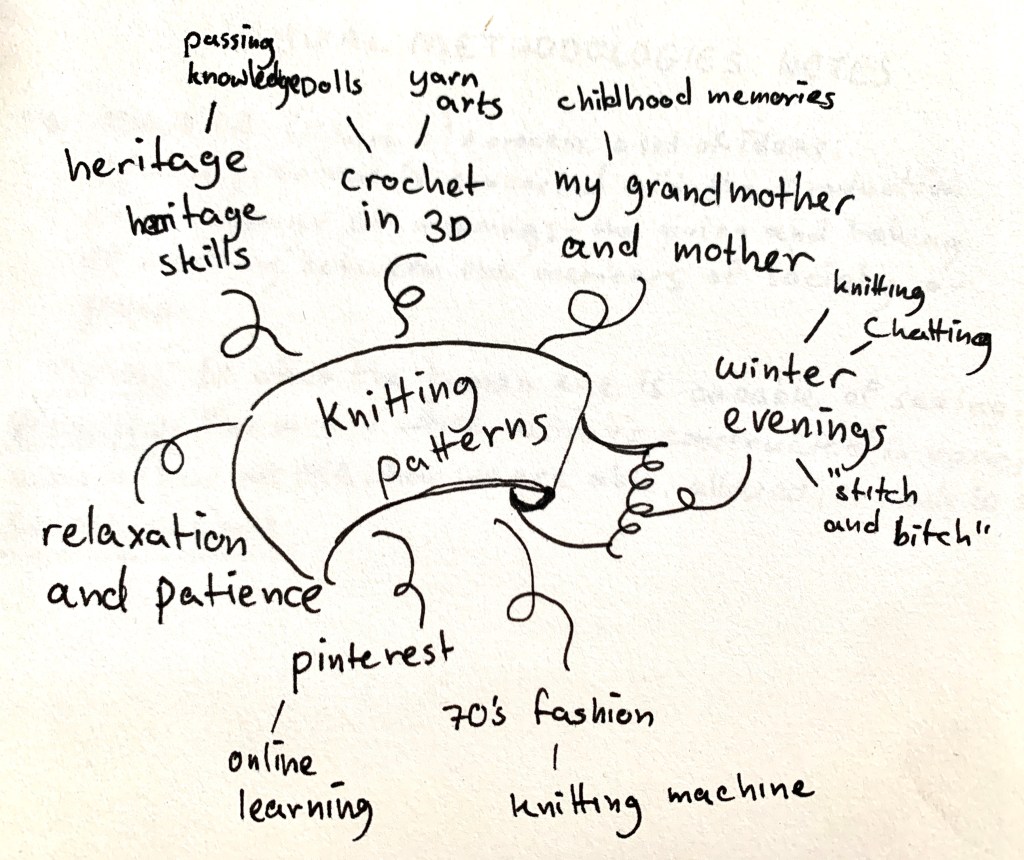 passing
knowledge
Dolls
yarn
arts
childhood memories
heritage
heritage
skills
crochet
in 3D
my grandmother
and mother
knitting
Chatting
winter
evenings
"stitch
and bitch"
Knitting
patterns
relaxation
and patience
pinterest
online
learning
70's fashion
knitting machine